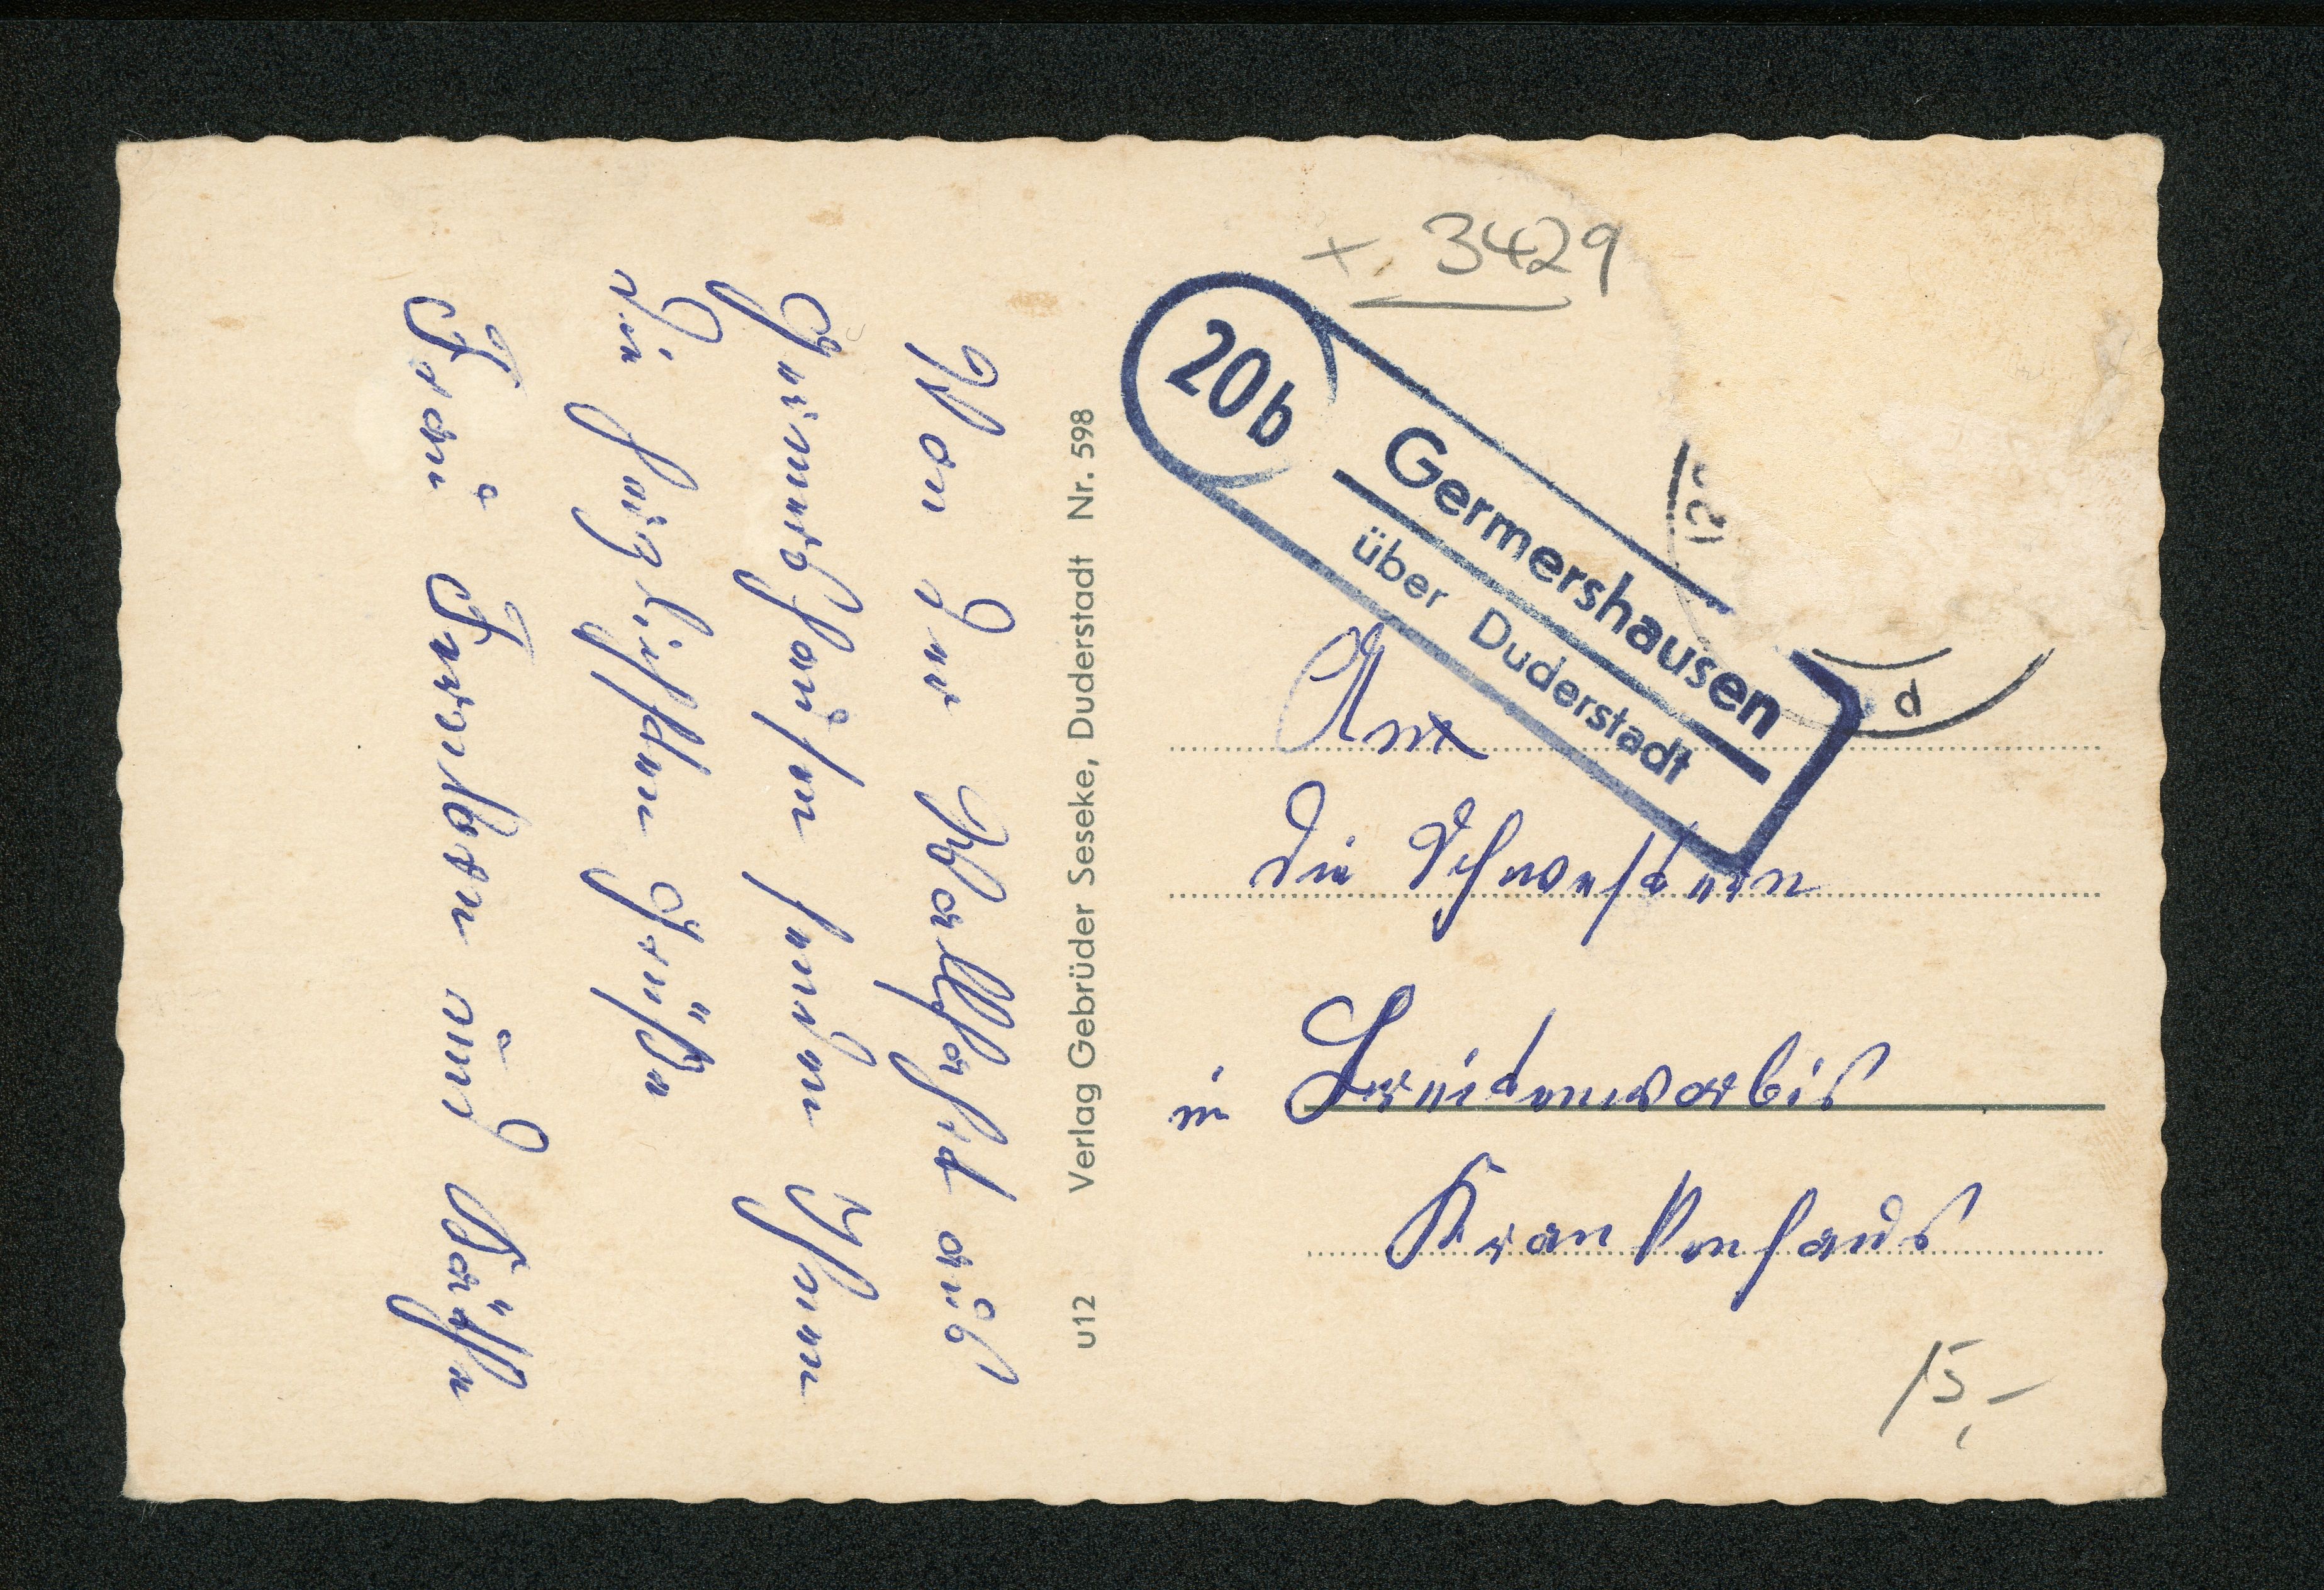 Von der Wallfahrt aus
Germershausen senden Ihnen
die herzlichsten Grüße
Frau
und Käthe
u12 Verlag Gebrüder Seseke, Duderstadt Nr. 598
+ 3429
20b
Germershausen
über Duderstadt
d
An
die Schwestern
in Breitenworbis
Krankenhaus
15,-